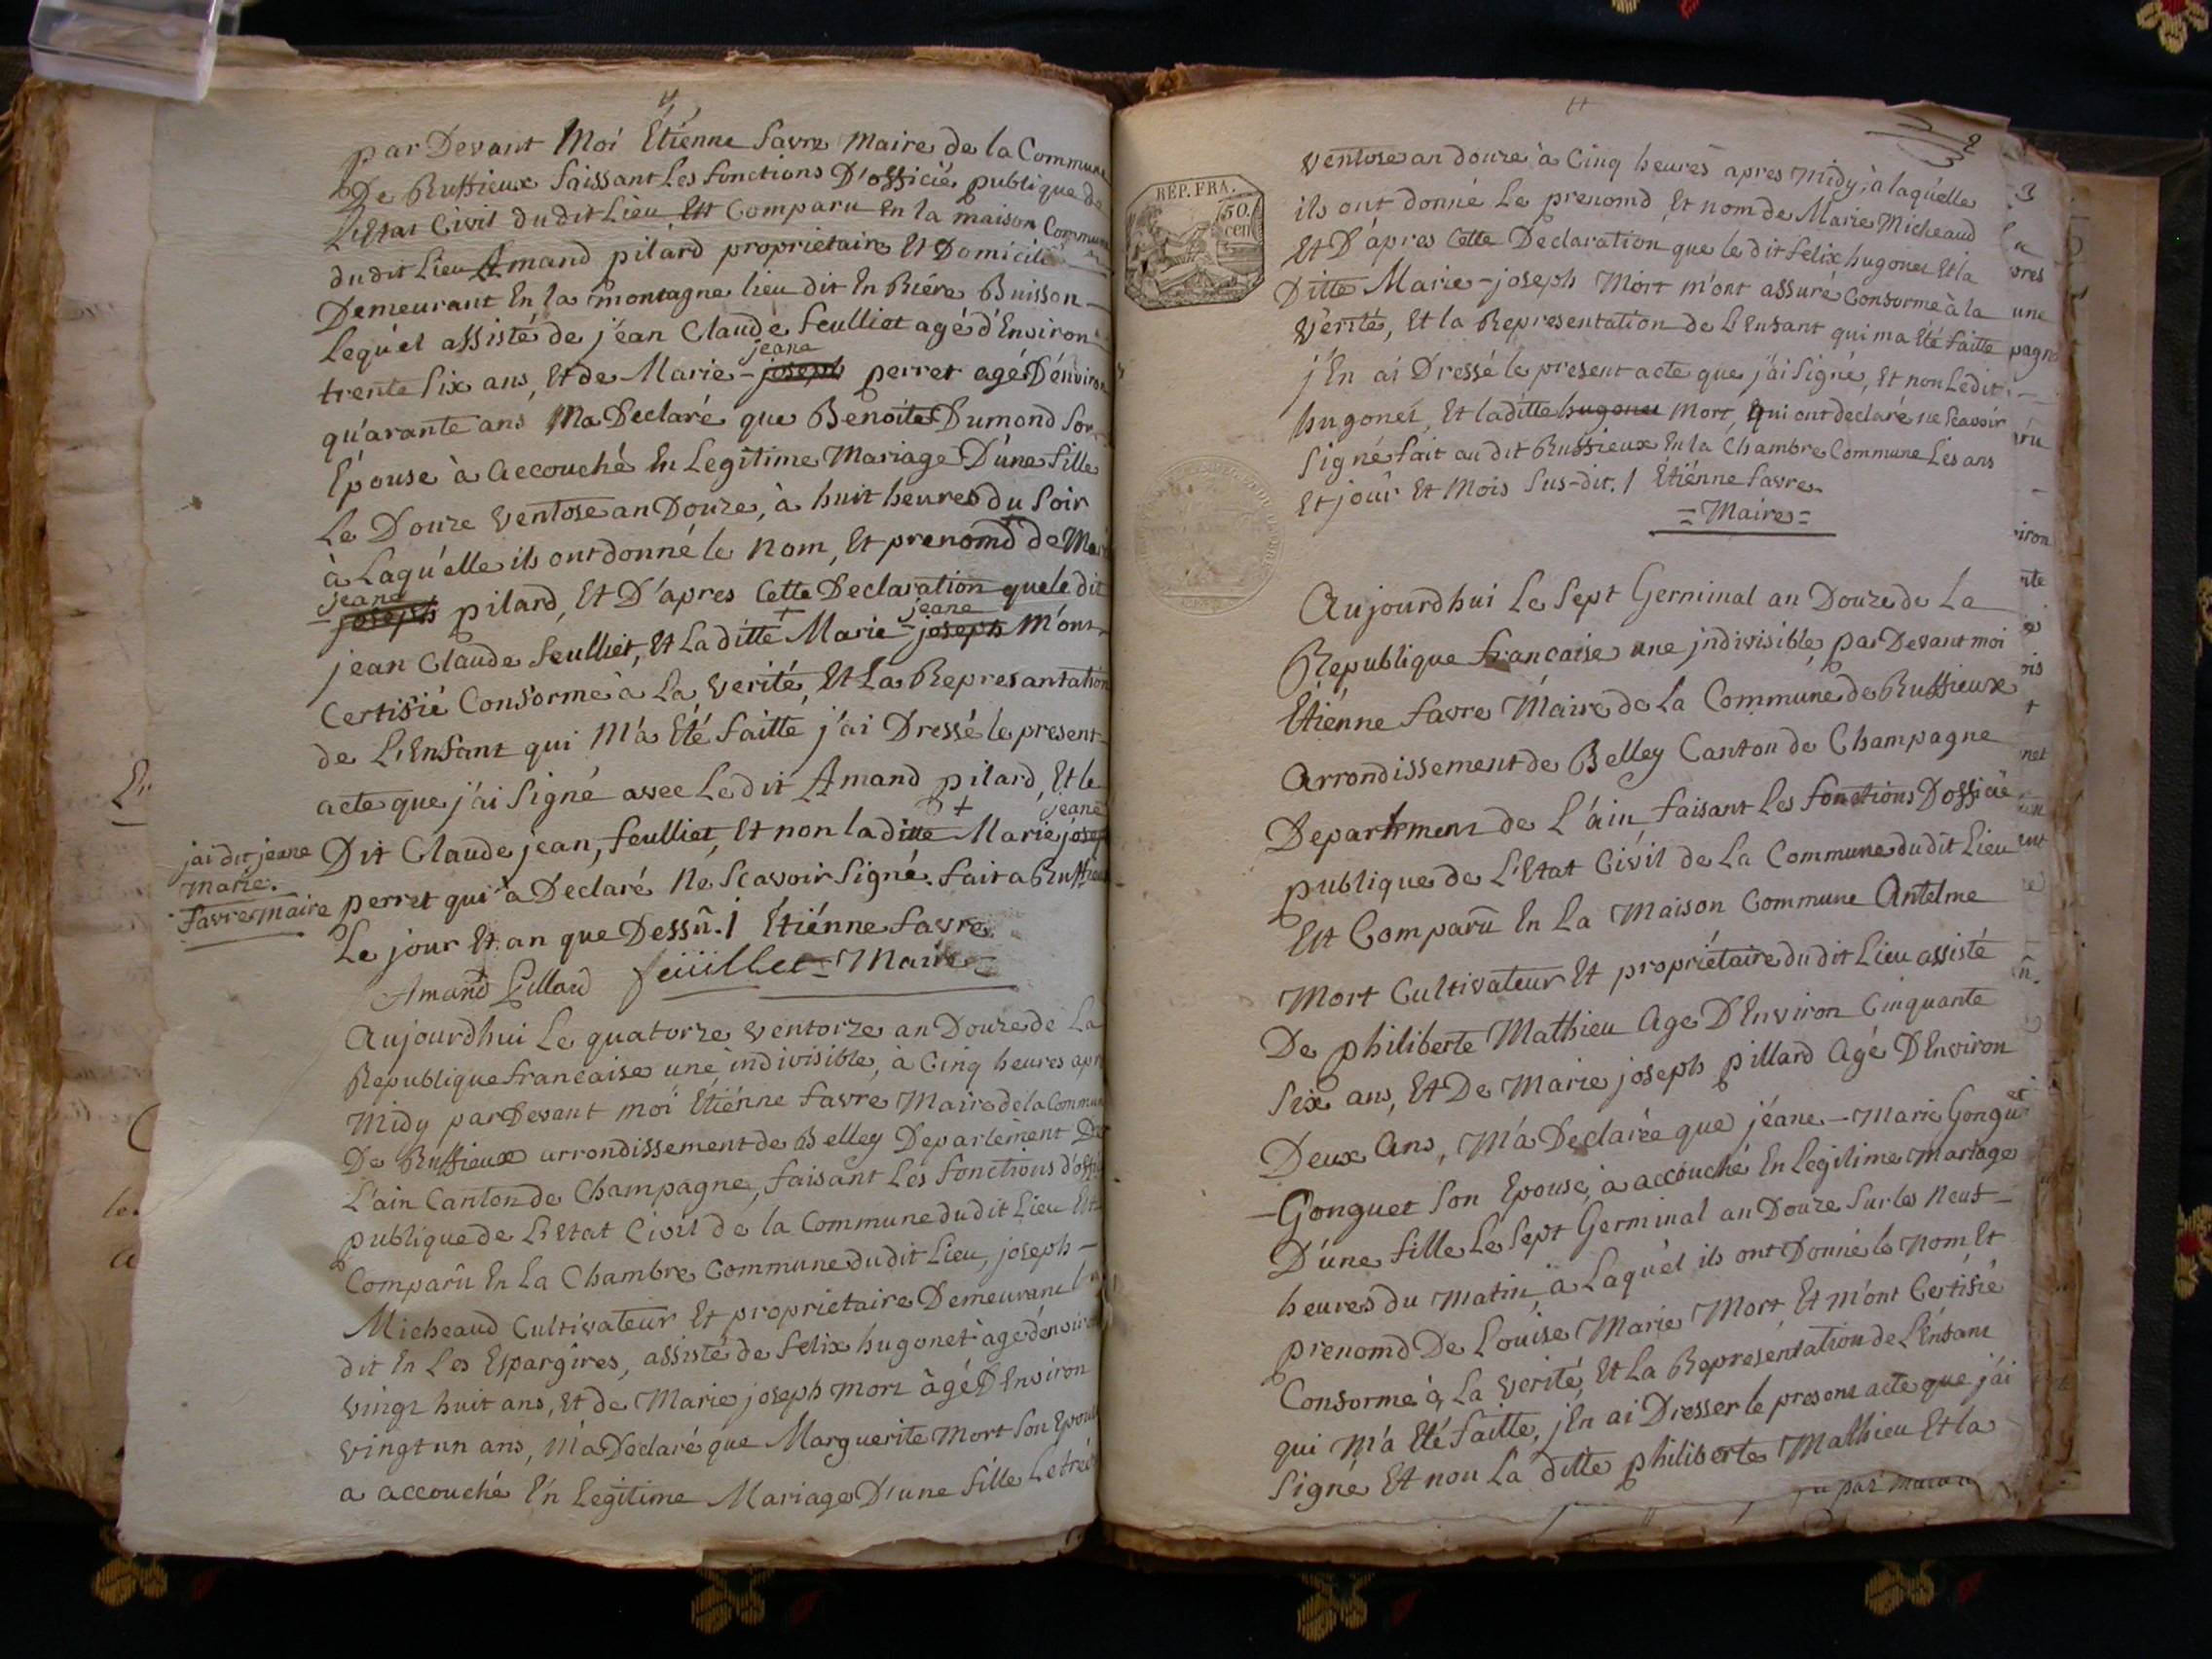 par Devant Moi Étienne favre Maire de la Commune
De Ruffieux faissant Les fonctions D'officié publique de
L'Etat Civil du dit Lieu Est Comparu En la maison Commune
du dit Lieu Amand pilard proprietaire Et Domicilié
Demeurant En la montagne lieu dit En Riére Buisson
Lequ'el assisté de jéan Claude feulliet agé d'Environ
jeane
trente Six ans, Et de Marie - joseph perret agé D'énviron
qu'arante ans Ma Declaré que Benoite Dumond Son
Épouse à accouché En Legitime Mariage D'une fille
Le Douze ventose an Douze, à huit heures du Soir
à Laqu'elle ils ont donné le nom, Et prenomd de Marie
jeane
- joseph pilard, Et D'apres Cette Declaration que le dit
jeane
jean Claude feulliet, Et La ditte Marie - joseph M'ont
Certifié Conforme à La verité, Et La Represantation
de L'Enfant qui M'à Eté faitte j'ai Dressé le present
acte que j'ai Signé avec Le dit Amand pilard, Et le
jeane
Dit Claude jean, feulliet, Et non la ditte Marie joseph
jai dit jeane
marie.
favre maire
perret qui a Declaré Ne Scavoir Signé. fait a Ruffieux
Le jour Et an que Dessû. / Étiénne favre
Amand Pillard feüillet = Maire =
Aujourdhui Le quatorze ventorze an Douze de La
Republique francaise une indivisible, à Cinq heures apr
Midy par Devant moi Etiénne favre Maire de la Commune
De Ruffieux arrondissement de Belley Departement De
L'ain Canton de Champagne, faisant Les fonctions d'offi
publique de L'Etat Civil de la Commune du dit Lieu Est
Comparû En La Chambre Commune du dit Lieu, joseph -
Micheaud Cultivateur Et proprietaire Demeurant
dit En Les Espargires, assisté de felix hugonet àgé d'enviro
vingt huit ans, Et de Marie joseph mort àgé D'Environ
vingt un ans, M'a Declaré que Marguerite Mort Son Epouse
a accouché En Legitime Mariage D'une fille Le tréize
REP. FRA.
50.
cen
2
ventose an douze à Cinq heures apres midy, à laqu'elle
ils ont donné Le prenomd Et nom de Marie Micheaud
Et D'ápres Cette Declaration que le dit felix hugonet Et la
Ditte Marie - joseph Mort m'ont assuré Conforme à la
vérité, Et la Representation de L'Enfant qui ma Eté faitte
j'En ai Dressé le present acte que j'ai Signé, Et non Le dit
hugonet, Et la ditte hugonet Mort, qui ont declaré ne Scavoir
Signé fait au dit Ruffieux En la Chambre Commune Les ans
Et joûr Et Mois Sus-dit. / Étiénne favre
= Maire =
Aujourdhui Le Sept Germinal an Douze de La
Republique francaise une jndivisible, par Devant moi
Étiénne favre Maire de La Commune de Ruffieux
Arrondissement de Belley Canton de Champagne
Departement de L'áin faisant Les fonctions D'officié
publique de L'Etat Civil de La Commune du dit Lieu
Est Comparû En La Maison Commune Antelme
Mort Cultivateur Et propriétaire du dit Lieu assisté
De philiberte Mathieu Age D'Environ Cinquante
Six ans, Et De Marie joseph pillard Agé D'Environ
Deux Ans, M'a Declarée que jéane - Marie Gonguet
- Gonguet Son Epouse, à accouché En Legitime Mariage
D'une fille Le Sept Germinal an Douze Sur les neuf -
heures du matin, à Laqu'el ils ont Donné le nom, Et
prenomd De Louise Marie Mort, Et m'ont Certifié
Conforme à La verité, Et La Representation de L'Enfant
qui M'a Eté faitte, j'En ai Dresser le present acte que j'ai
Signé Et non La ditte philiberte Mathieu Et la